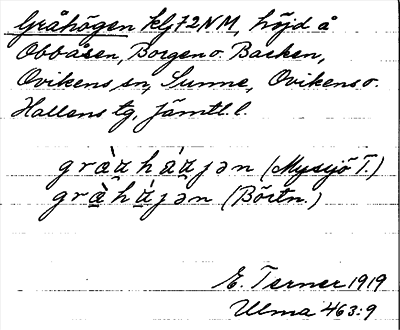 Gråhögen kfj 72 NM, höjd å
Obbåsen, Borgen o. Backen,
Ovikens sn, Sunne, Ovikens o.
Hallens tg, Jämtl. l.
(Mysjö T.)
(Börtn.)
E. Terner 1919
Ulma 463:9